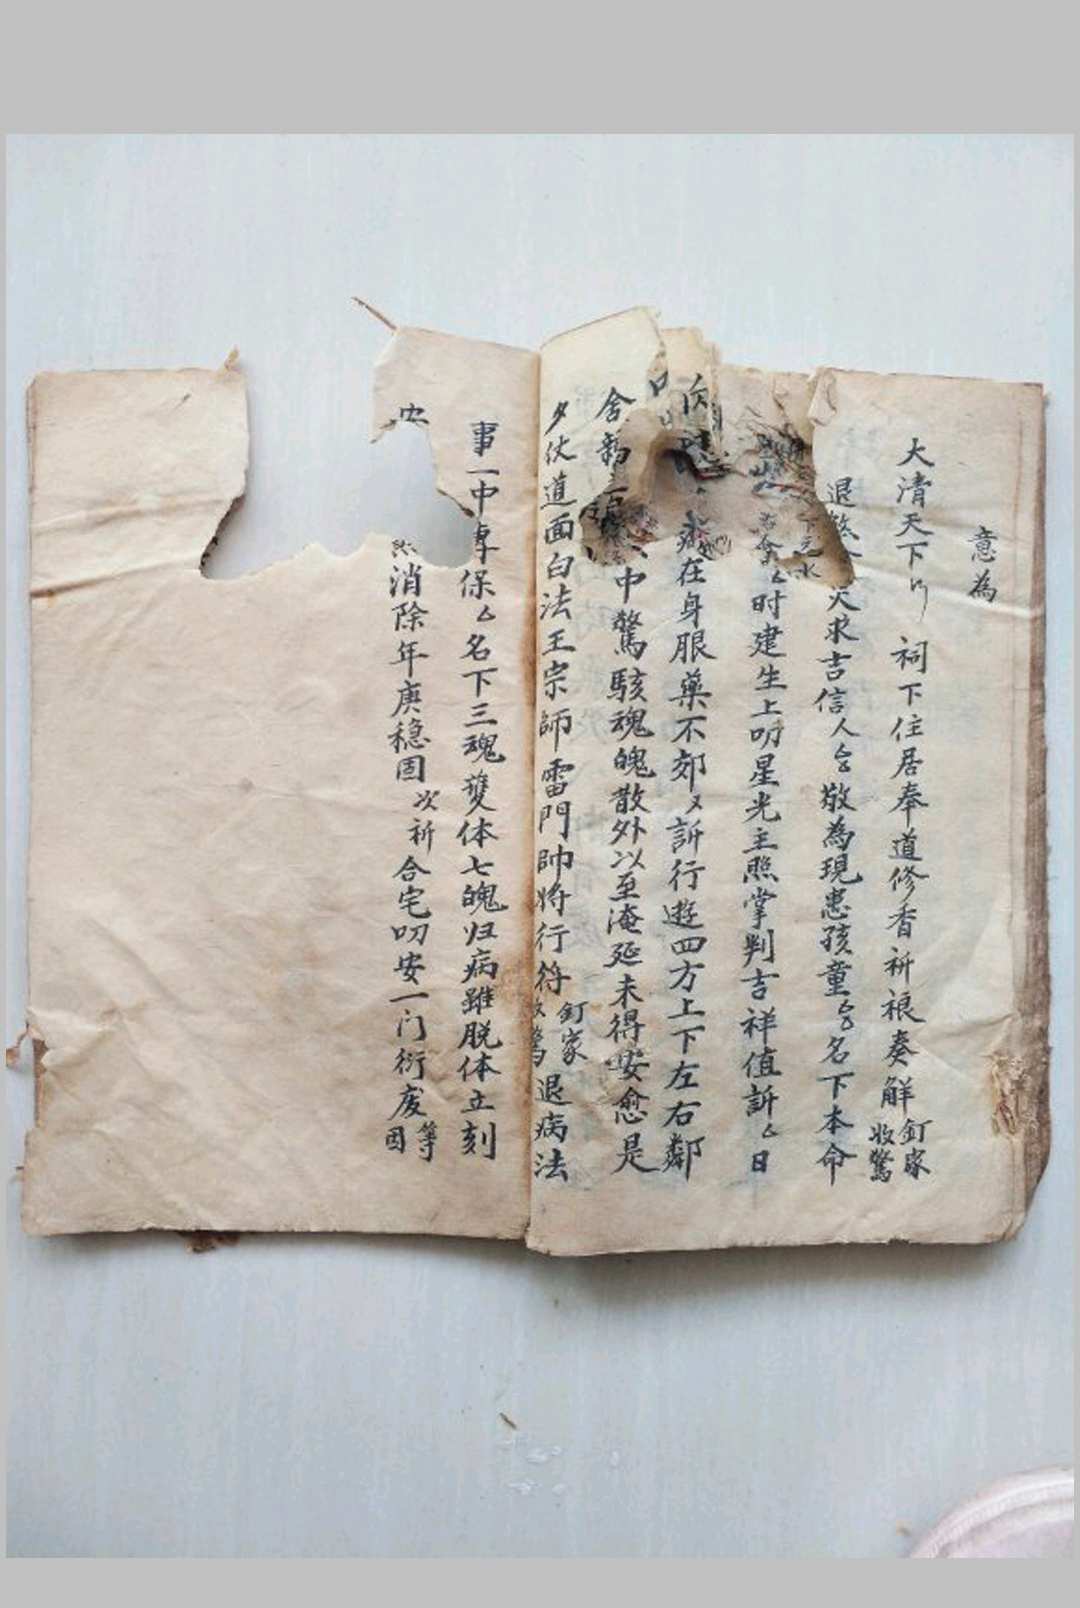 意為
大清天下 祠下住居奉道修香祈禳奏解 釘家 收驚
退煞 災求吉信人 敬為現患孩童 名下本命
时建生上叨星光主照掌判吉祥值訴厶日
藏在身服藥不効又訴行遊四方上下左右鄰
舍 中驚駭魂魄散外以至淹延未得安愈是
夕仗道面白法王宗師雷門帥将行符 釘家 收驚 退病法
事一中專保厶名下三魂雙体七魄归病雖脱体立刻
安 消除年庚穏固次祈合宅叨安一门衍庆等因